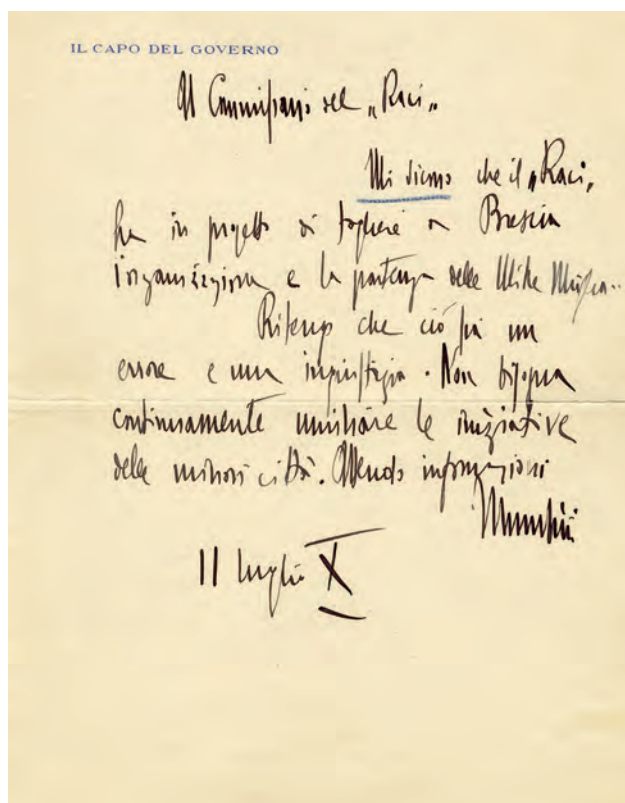 IL CAPO DEL GOVERNO
Al Commissario del „Raci„
Mi dicono che il „Raci„
ha in progetto di togliere a Brescia
l'organizzazione e la partenza delle Mille Miglia.
Ritengo che ciò sia un
errore e una ingiustizia. Non bisogna
continuamente umiliare le iniziative
delle minori città. Attendo informazioni
Mussolini
11 luglio X